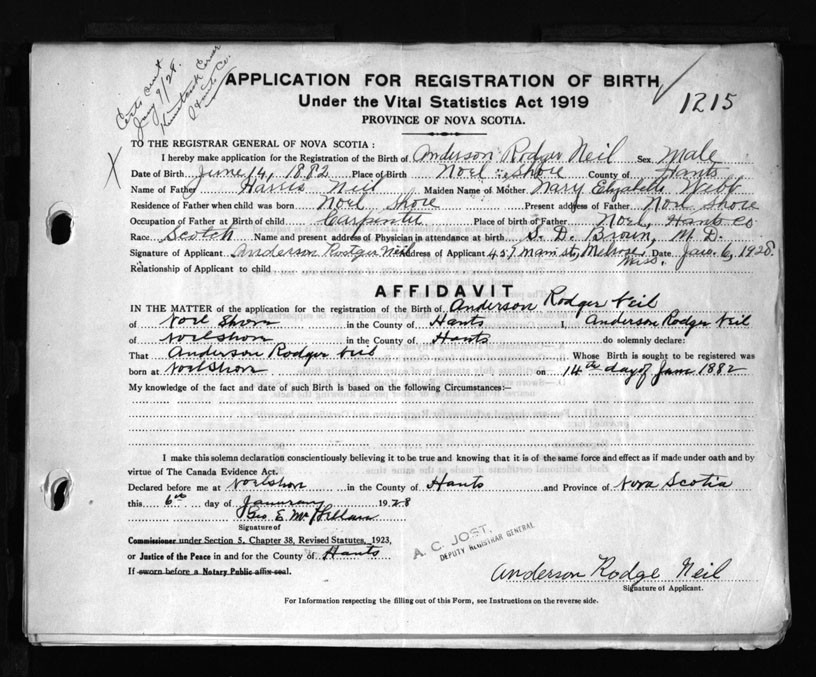 Certs sent
Jany 7/28.
Hants Co.
APPLICATION FOR REGISTRATION OF BIRTH
1215
Under the Vital Statistics Act 1919
PROVINCE OF NOVA SCOTIA.
TO THE REGISTRAR GENERAL OF NOVA SCOTIA:
I hereby make application for the Registration of the Birth of Anderson Rodger Neil Sex Male
Date of Birth June 14, 1882 Place of Birth Noel Shore County of Hants
Name of Father Harris Neil Maiden Name of Mother Mary Elizabeth Webb
Residence of Father when child was born Noel Shore Present address of Father Noel Shore
Occupation of Father at Birth of child Carpenter Place of birth of Father Noel, Hants Co
Race Scotch Name and present address of Physician in attendance at birth S. D. Brown, M. D.
Signature of Applicant Anderson Rodger Neil Address of Applicant 459 Main st, Melrose Mass. Date Jan. 6, 1928
Relationship of Applicant to child
AFFIDAVIT
IN THE MATTER of the application for the registration of the Birth of Anderson Rodger Neil
of Noel Shore in the County of Hants I, Anderson Rodger Neil
of Noel Shore in the County of Hants do solemnly declare:
That Anderson Rodger Neil Whose Birth is sought to be registered was
born at Noel Shore on 14th day of June 1882
My knowledge of the fact and date of such Birth is based on the following Circumstances:-
I make this solemn declaration conscientiously believing it to be true and knowing that it is of the same force and effect as if made under oath and by
virtue of The Canada Evidence Act.
Declared before me at Noel Shore in the County of Hants and Province of Nova Scotia
this 6th day of January 1928
Geo. E.
Signature of
Commissioner under Section 5, Chapter 38, Revised Statutes, 1923,
or Justice of the Peace in and for the County of Hants
If sworn before a Notary Public affix seal.
A. C. JOST.
DEPUTY REGISTRAR GENERAL
Anderson Rodge Neil
Signature of Applicant.
For Information respecting the filling out of this Form, see Instructions on the reverse side.